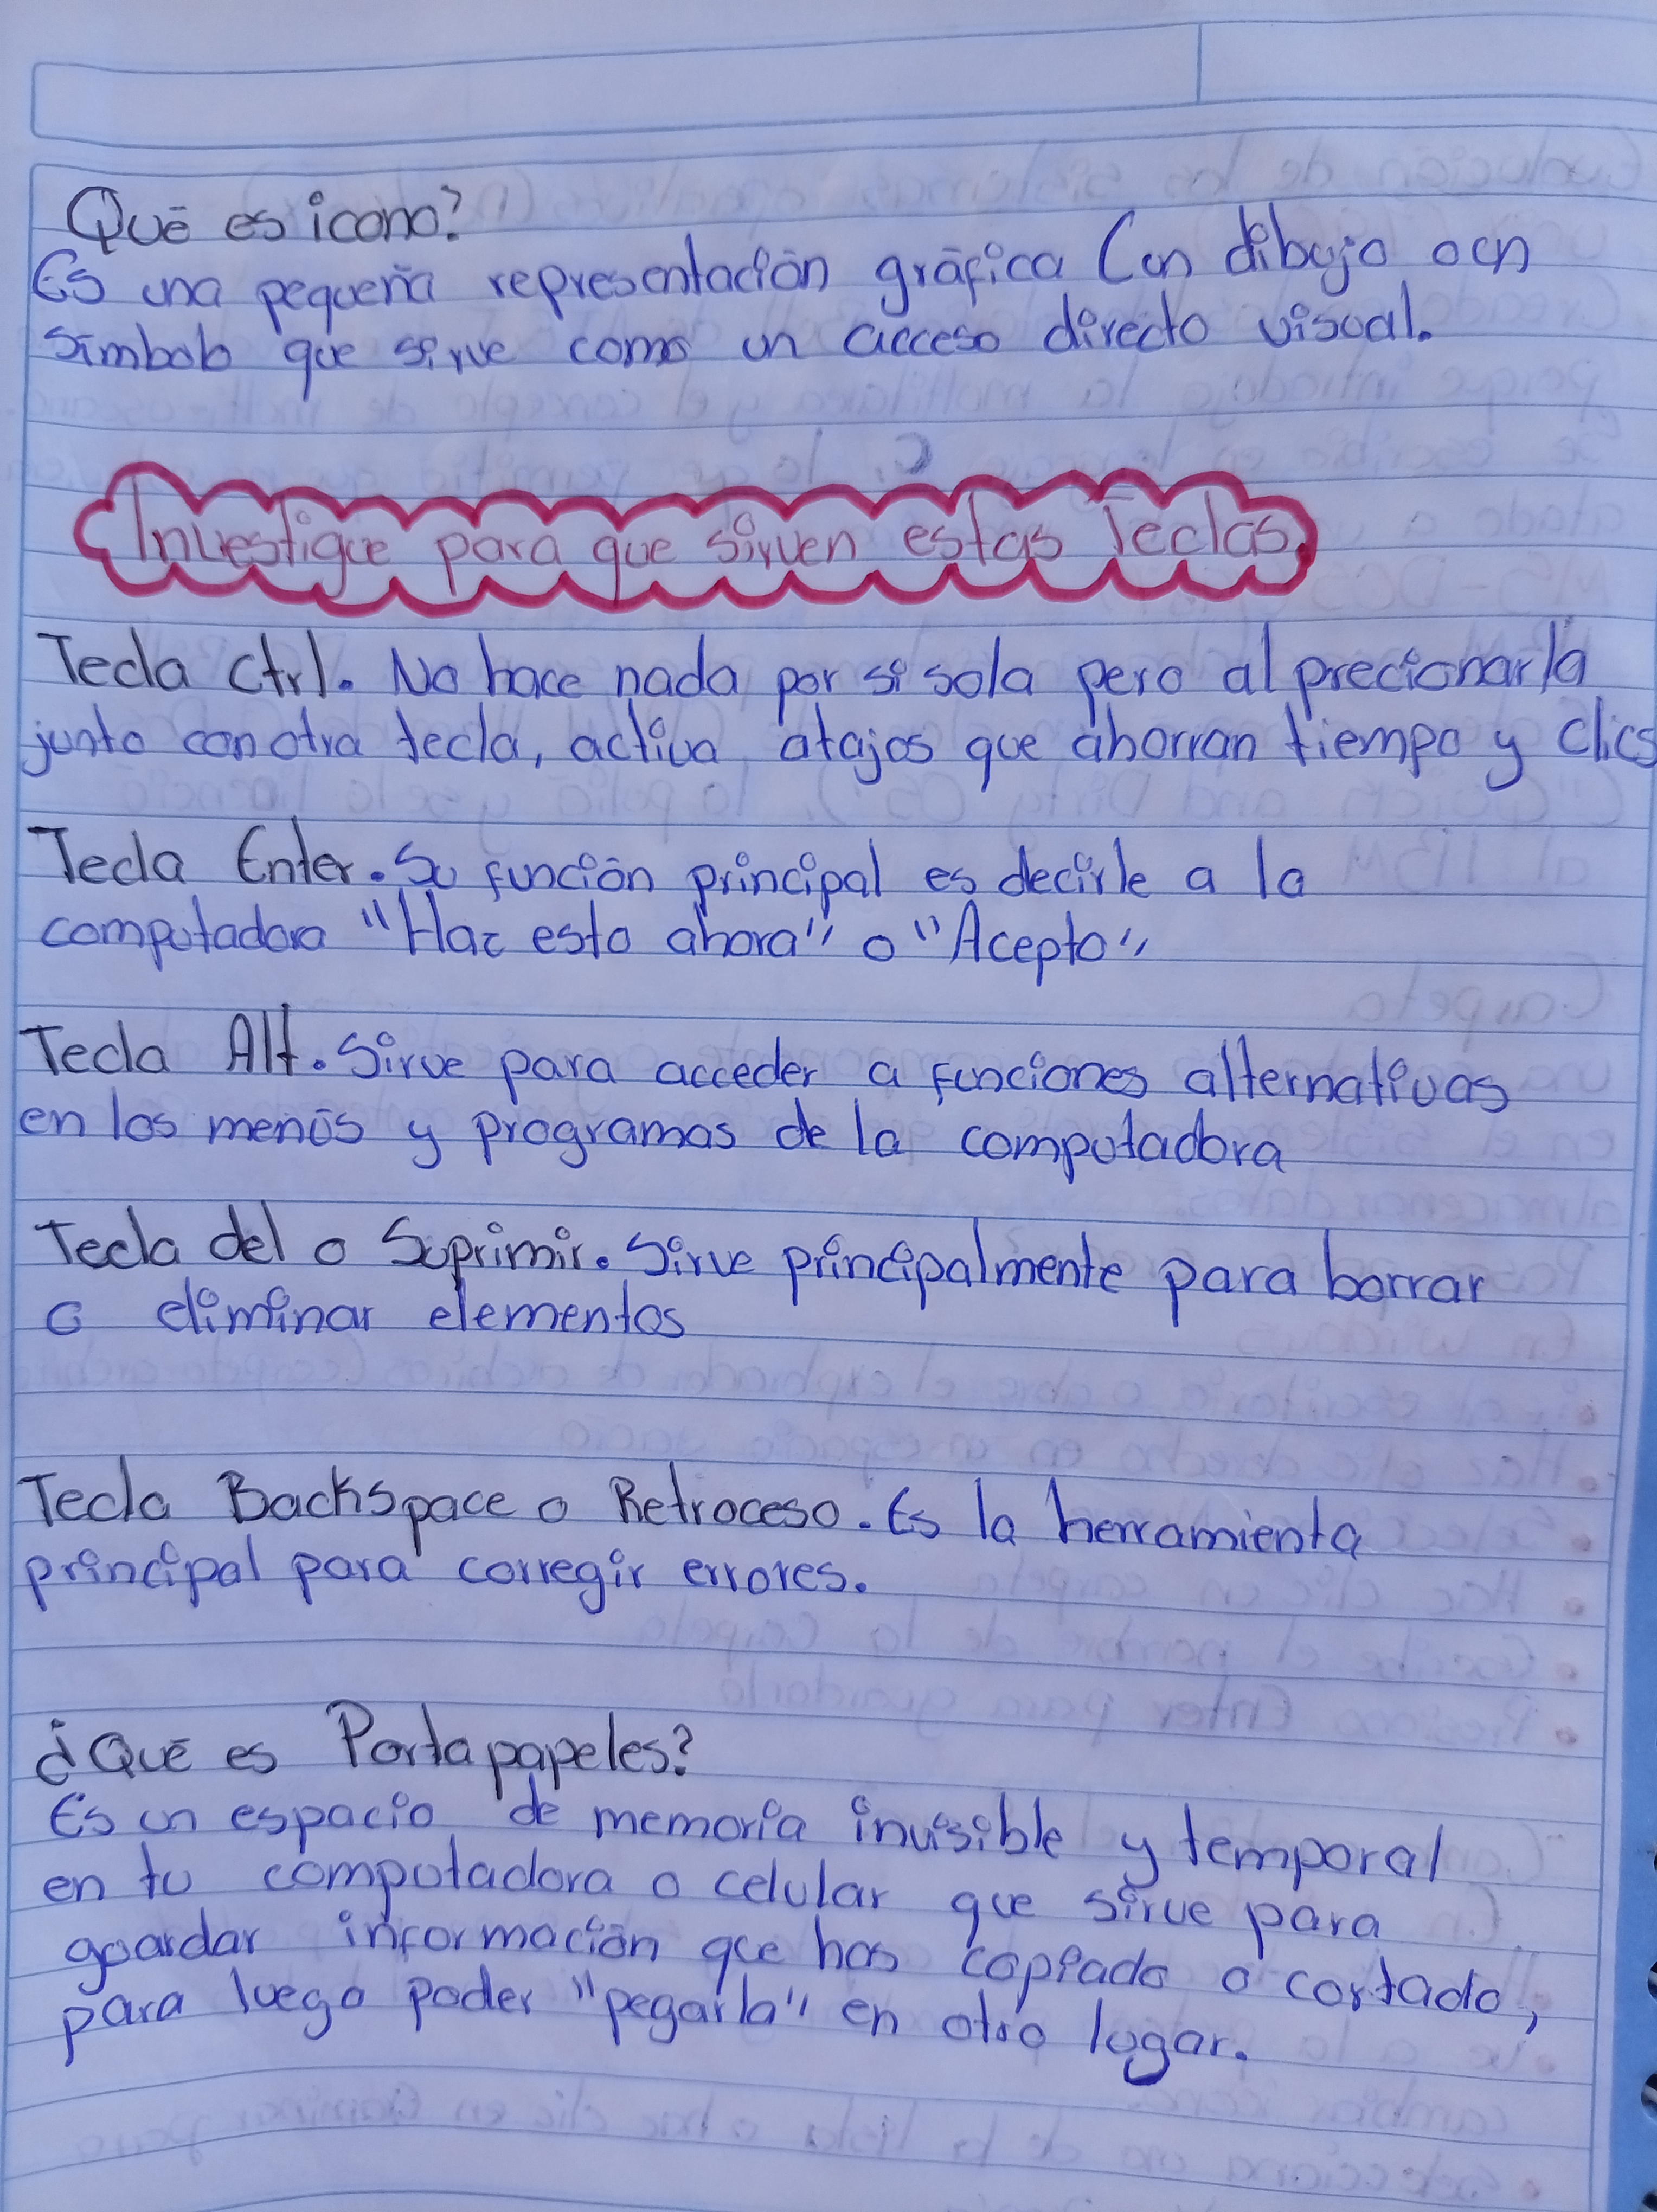 Qué es icono?
Es una pequeña representación gráfica (un dibujo o un
símbolo que sirve como un acceso directo visual.
Investigue para que sirven estas Teclas.
Tecla Ctrl. No hace nada por si sola pero al precionarla
junto con otra tecla, activa atajos que ahorran tiempo y clics
Tecla Enter. Su función principal es decirle a la
computadora "Haz esto ahora" o "Acepto"
Tecla Alt. Sirve para acceder a funciones alternativas
en los menús y programas de la computadora
Tecla del o Suprimir. Sirve principalmente para borrar
o eliminar elementos
Tecla Backspace o Retroceso. Es la herramienta
principal para corregir errores.
¿Qué es Portapapeles?
Es un espacio de memoria invisible y temporal
en tu computadora o celular que sirve para
guardar información que has copiado o cortado,
para luego poder "pegarla" en otro lugar.